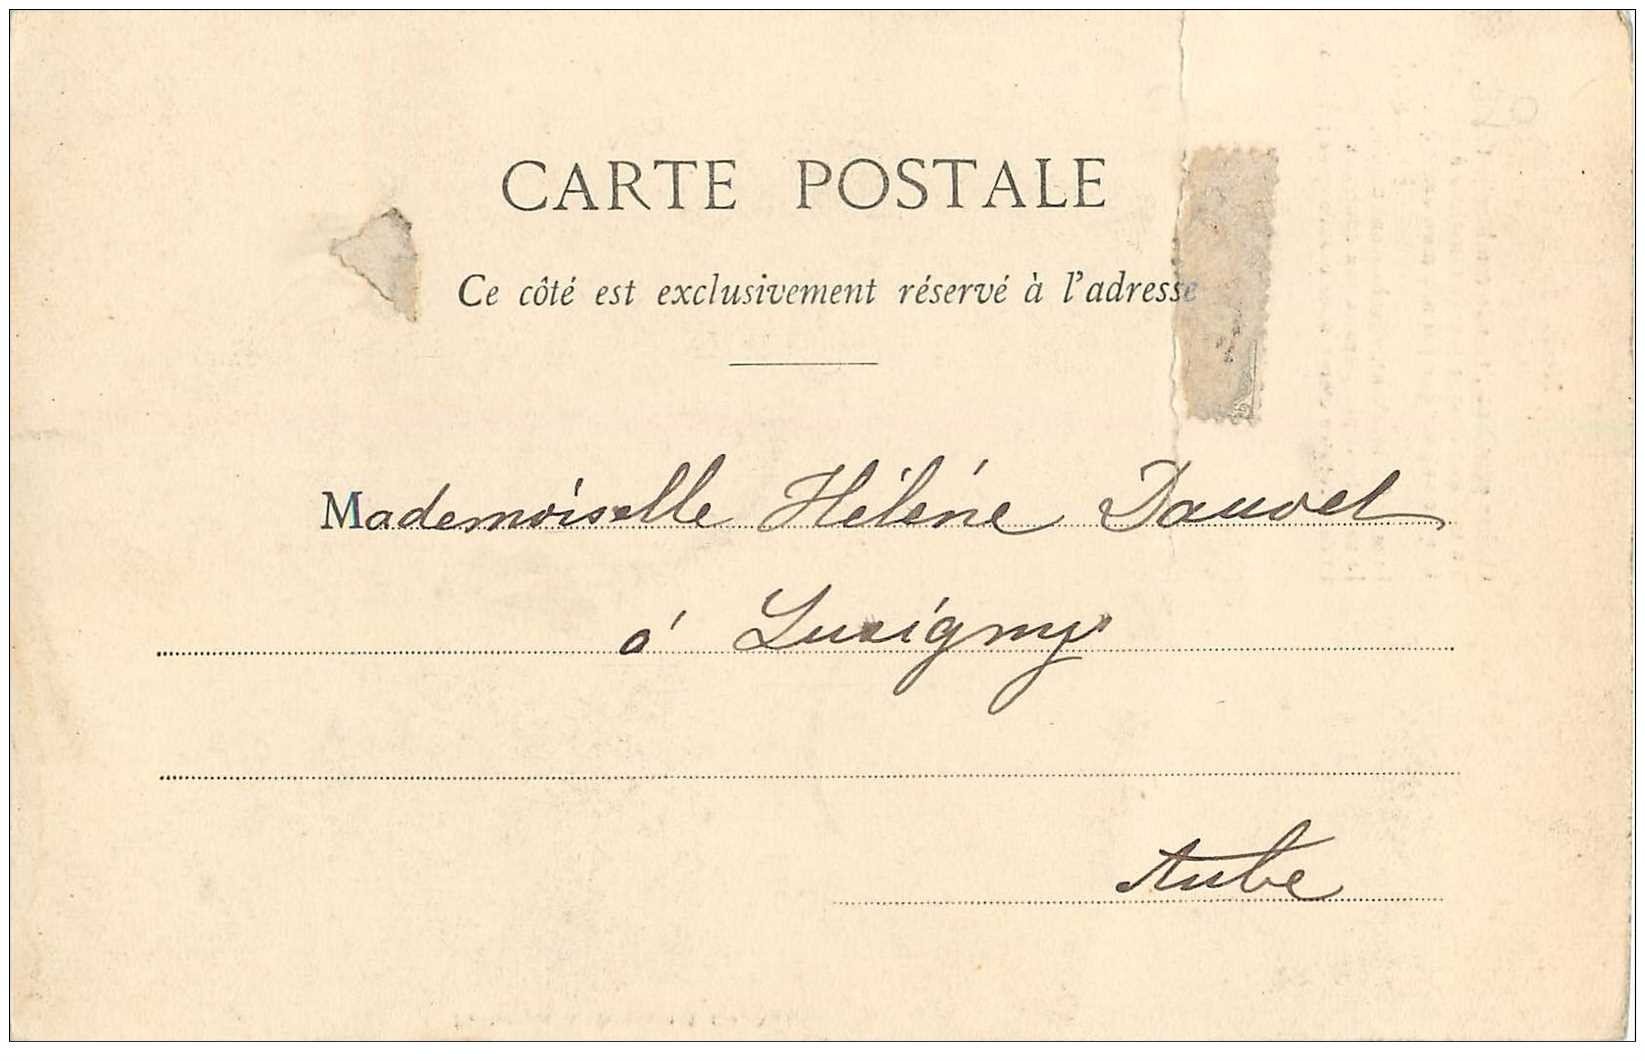 20
CARTE POSTALE
Ce côté est exclusivement réservé à l'adresse
Mademoiselle Hélène Dauvet
à Lusigny
Aube